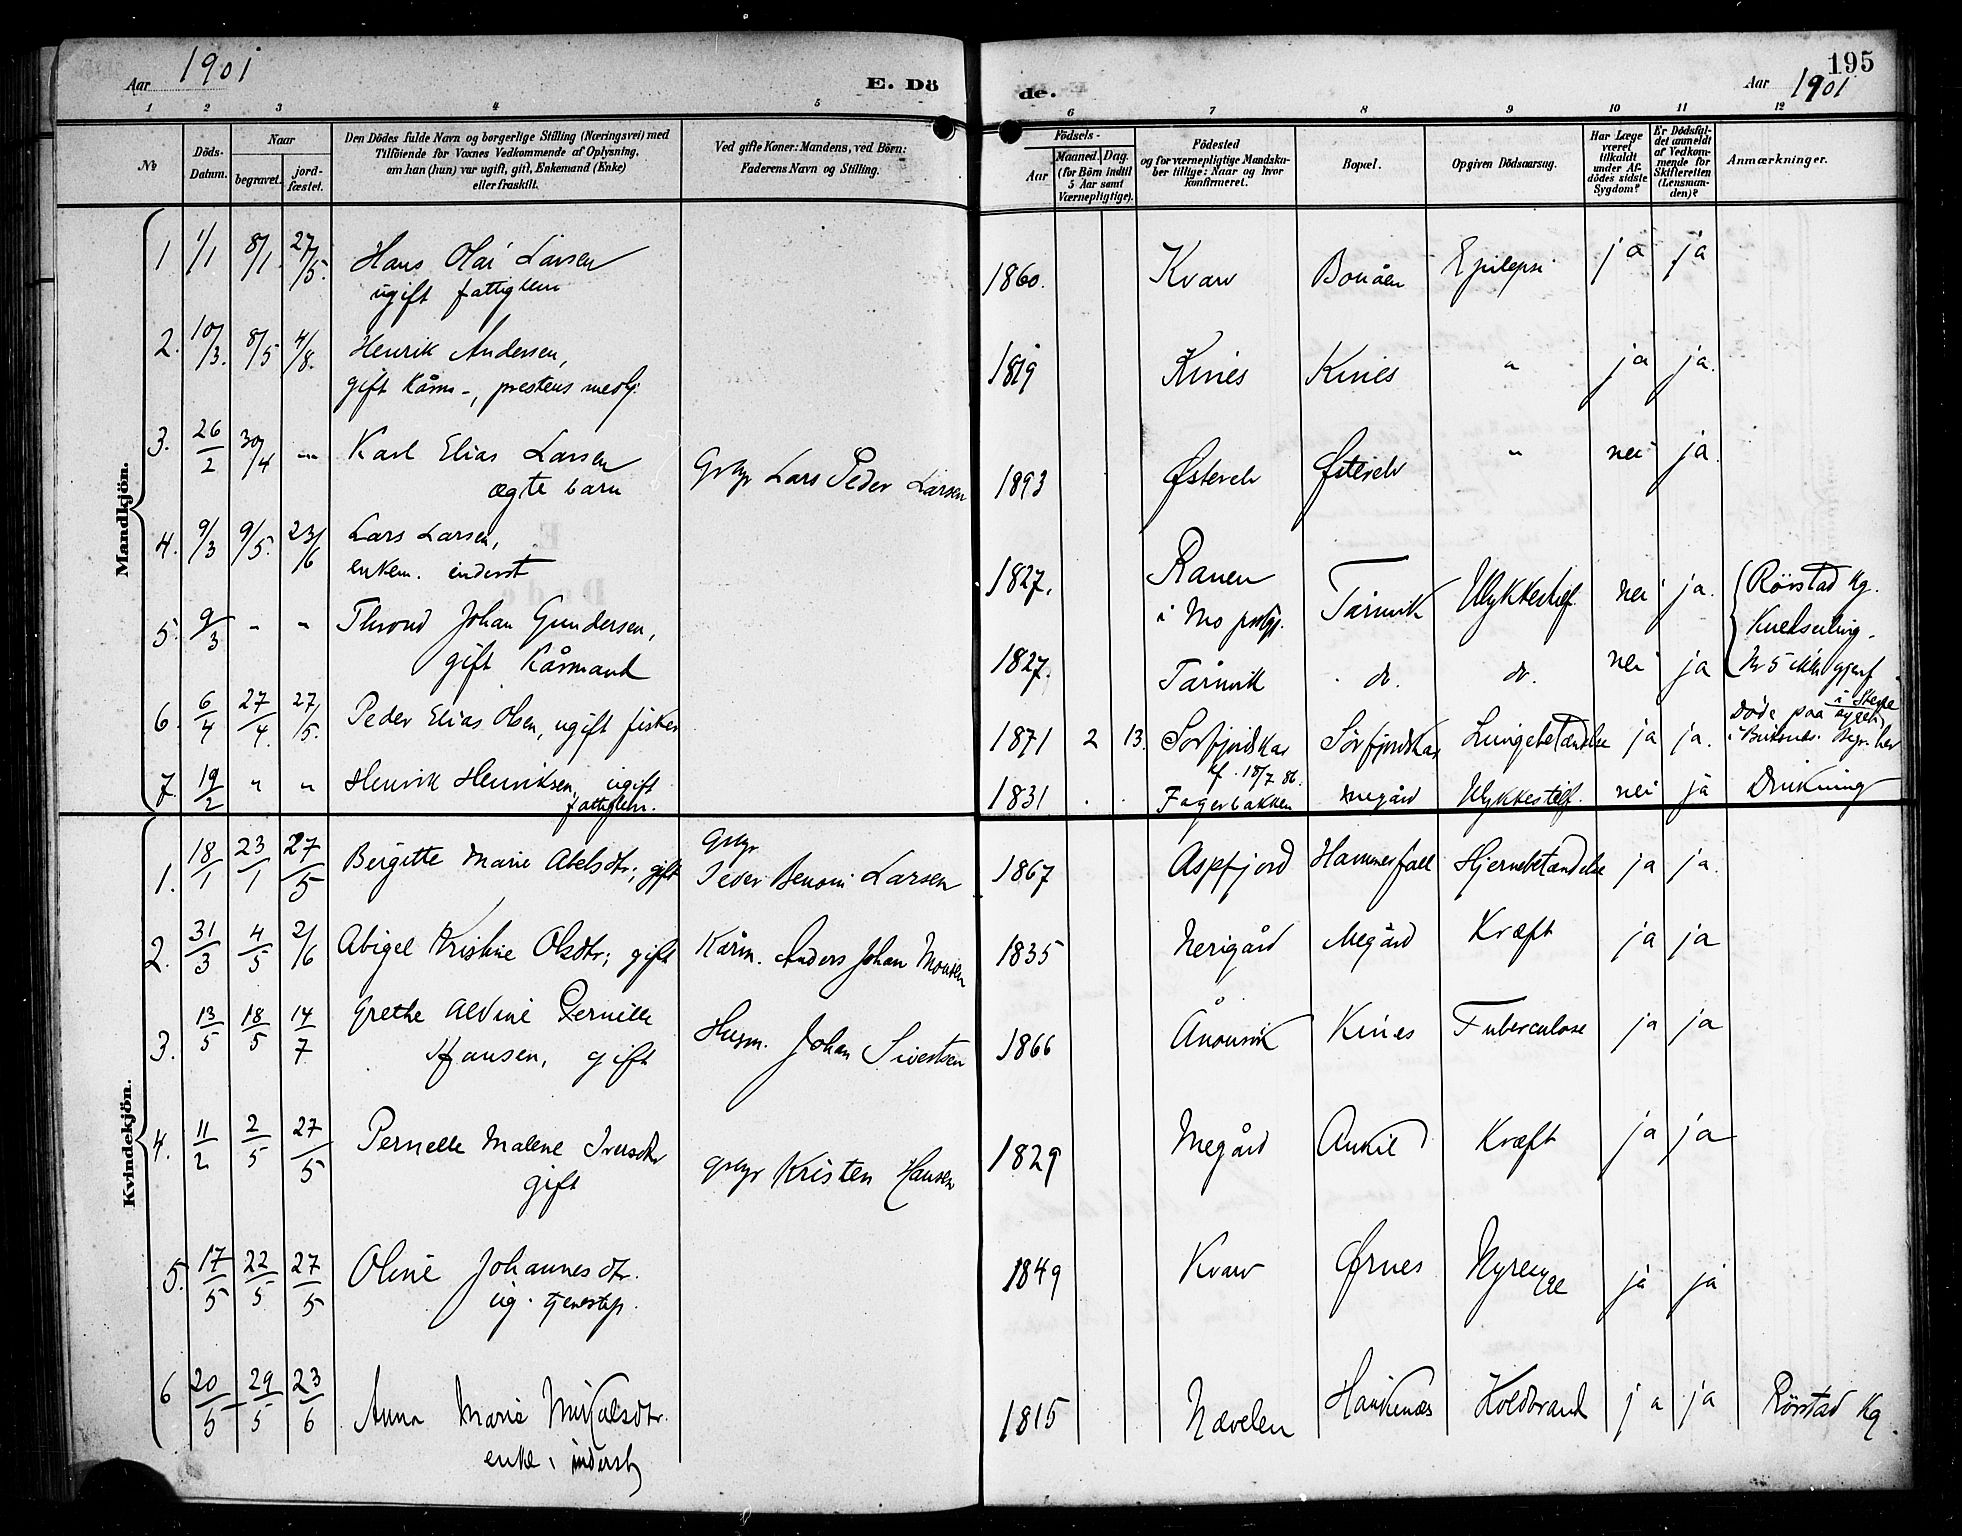 Aar 1901
E. Dö
de.
195
Aar 1901
1 2 3 4 5 6 7 8 9 10 11 12
No
Döds-
Datum.
Naar
begravet.
jord-
fæstet.
Den Dödes fulde Navn og borgerlige Stilling (Næringsvei) med
Tilföiende for Voxnes Vedkommende af Oplysning,
om han (hun) var ugift, gift, Enkemand (Enke)
eller fraskilt.
Ved gifte Koner: Mandens, ved Börn:
Faderens Navn og Stilling.
Födsels-
Aar
Maaned. Dag.
(for Börn indtil
5 Aar samt
Værnepligtige).
Födested
og for værnepligtige Mandska-
ber tillige: Naar og hvor
konfirmeret.
Bopæl.
Opgiven Dödsaarsag.
Har Læge
været
tilkaldt
under Af-
dödes sidste
Sygdom?
Er Dödsfal-
det anmeldt
af Vedkom-
mende for
Skifteretten
(Lensman-
den)?
Anmærkninger.
Mandkjön.
1 1/1 8/1 27/5. Hans Olai Larsen 1860. Kvarv Bonåen Epilepsi ja ja
ugift fattiglem
2. 10/3. 8/5 4/8. Henrik Andersen, 1819 Kines Kines " ja ja.
gift Kårm-, prestens medhj.
3. 26/2 30/4 " Karl Elias Larsen Grbgr Lars Peder Larsen 1893 Østerelv Østerelv " nei ja.
ægte barn
4. 9/3 9/5. 23/6 Lars Larsen, 1827. Ranen Tårnvik Ulykkestilf. nei ja. Rörstad Kg.
enkem. inderst i Mo prstgj. Kuldseiling.
5. 9/3 " " Thrond Johan Gundersen, 1827. Tårnvik do. do. nei ja Nr 5 ikke gjenf
gift Kårmand
6. 6/4 27/4. 27/5. Peder Elias Olsen, ugift fisker 1871 2 13. Sörfjordskar Sörfjordskar Lungebetændelse ja ja. Döde paa sygeh.
kf. 18/7 86. i Buksnes. Begr. her
7. 19/2 " " Henrik Henriksen, ugift 1831 Fagerbakken Megård Ulykkestilf. nei ja Drukning
fattiglem.
Kvindekjön.
1. 18/1 23/1 27/5 Bergitte Marie Abelsdtr; gift Grbgr Peder Benoni Larsen 1867 Aspfjord Hammerfall Hjernebetændelse ja ja.
2. 31/3 4/5 2/6 Abigel Kristine Olsdtr; gift Kårm. Anders Johan Monsen 1835 Nerigård Megård Kræft ja ja
3. 13/5 18/5 14/7 Grethe Aldine Pernille Husm. Johan Sivertsen 1866 Ånonvik Kines Tuberculose ja ja
Hansen, gift
4. 11/2 2/5 27/5 Pernelle Malene Iversdtr Grbgr Kristen Hansen 1829 Megård Ankil Kræft ja ja
gift
5. 17/5 22/5 27/5 Oline Johannesdtr. 1849 Kvarv Ørnes Nyresyge ja ja
ug. tjenestep.
6 20/5 29/5 23/6 Anna Marie Mikalsdtr. 1815 Nævelen Haukenæs Koldbrand ja ja Rörstad Kg.
enke, inderst